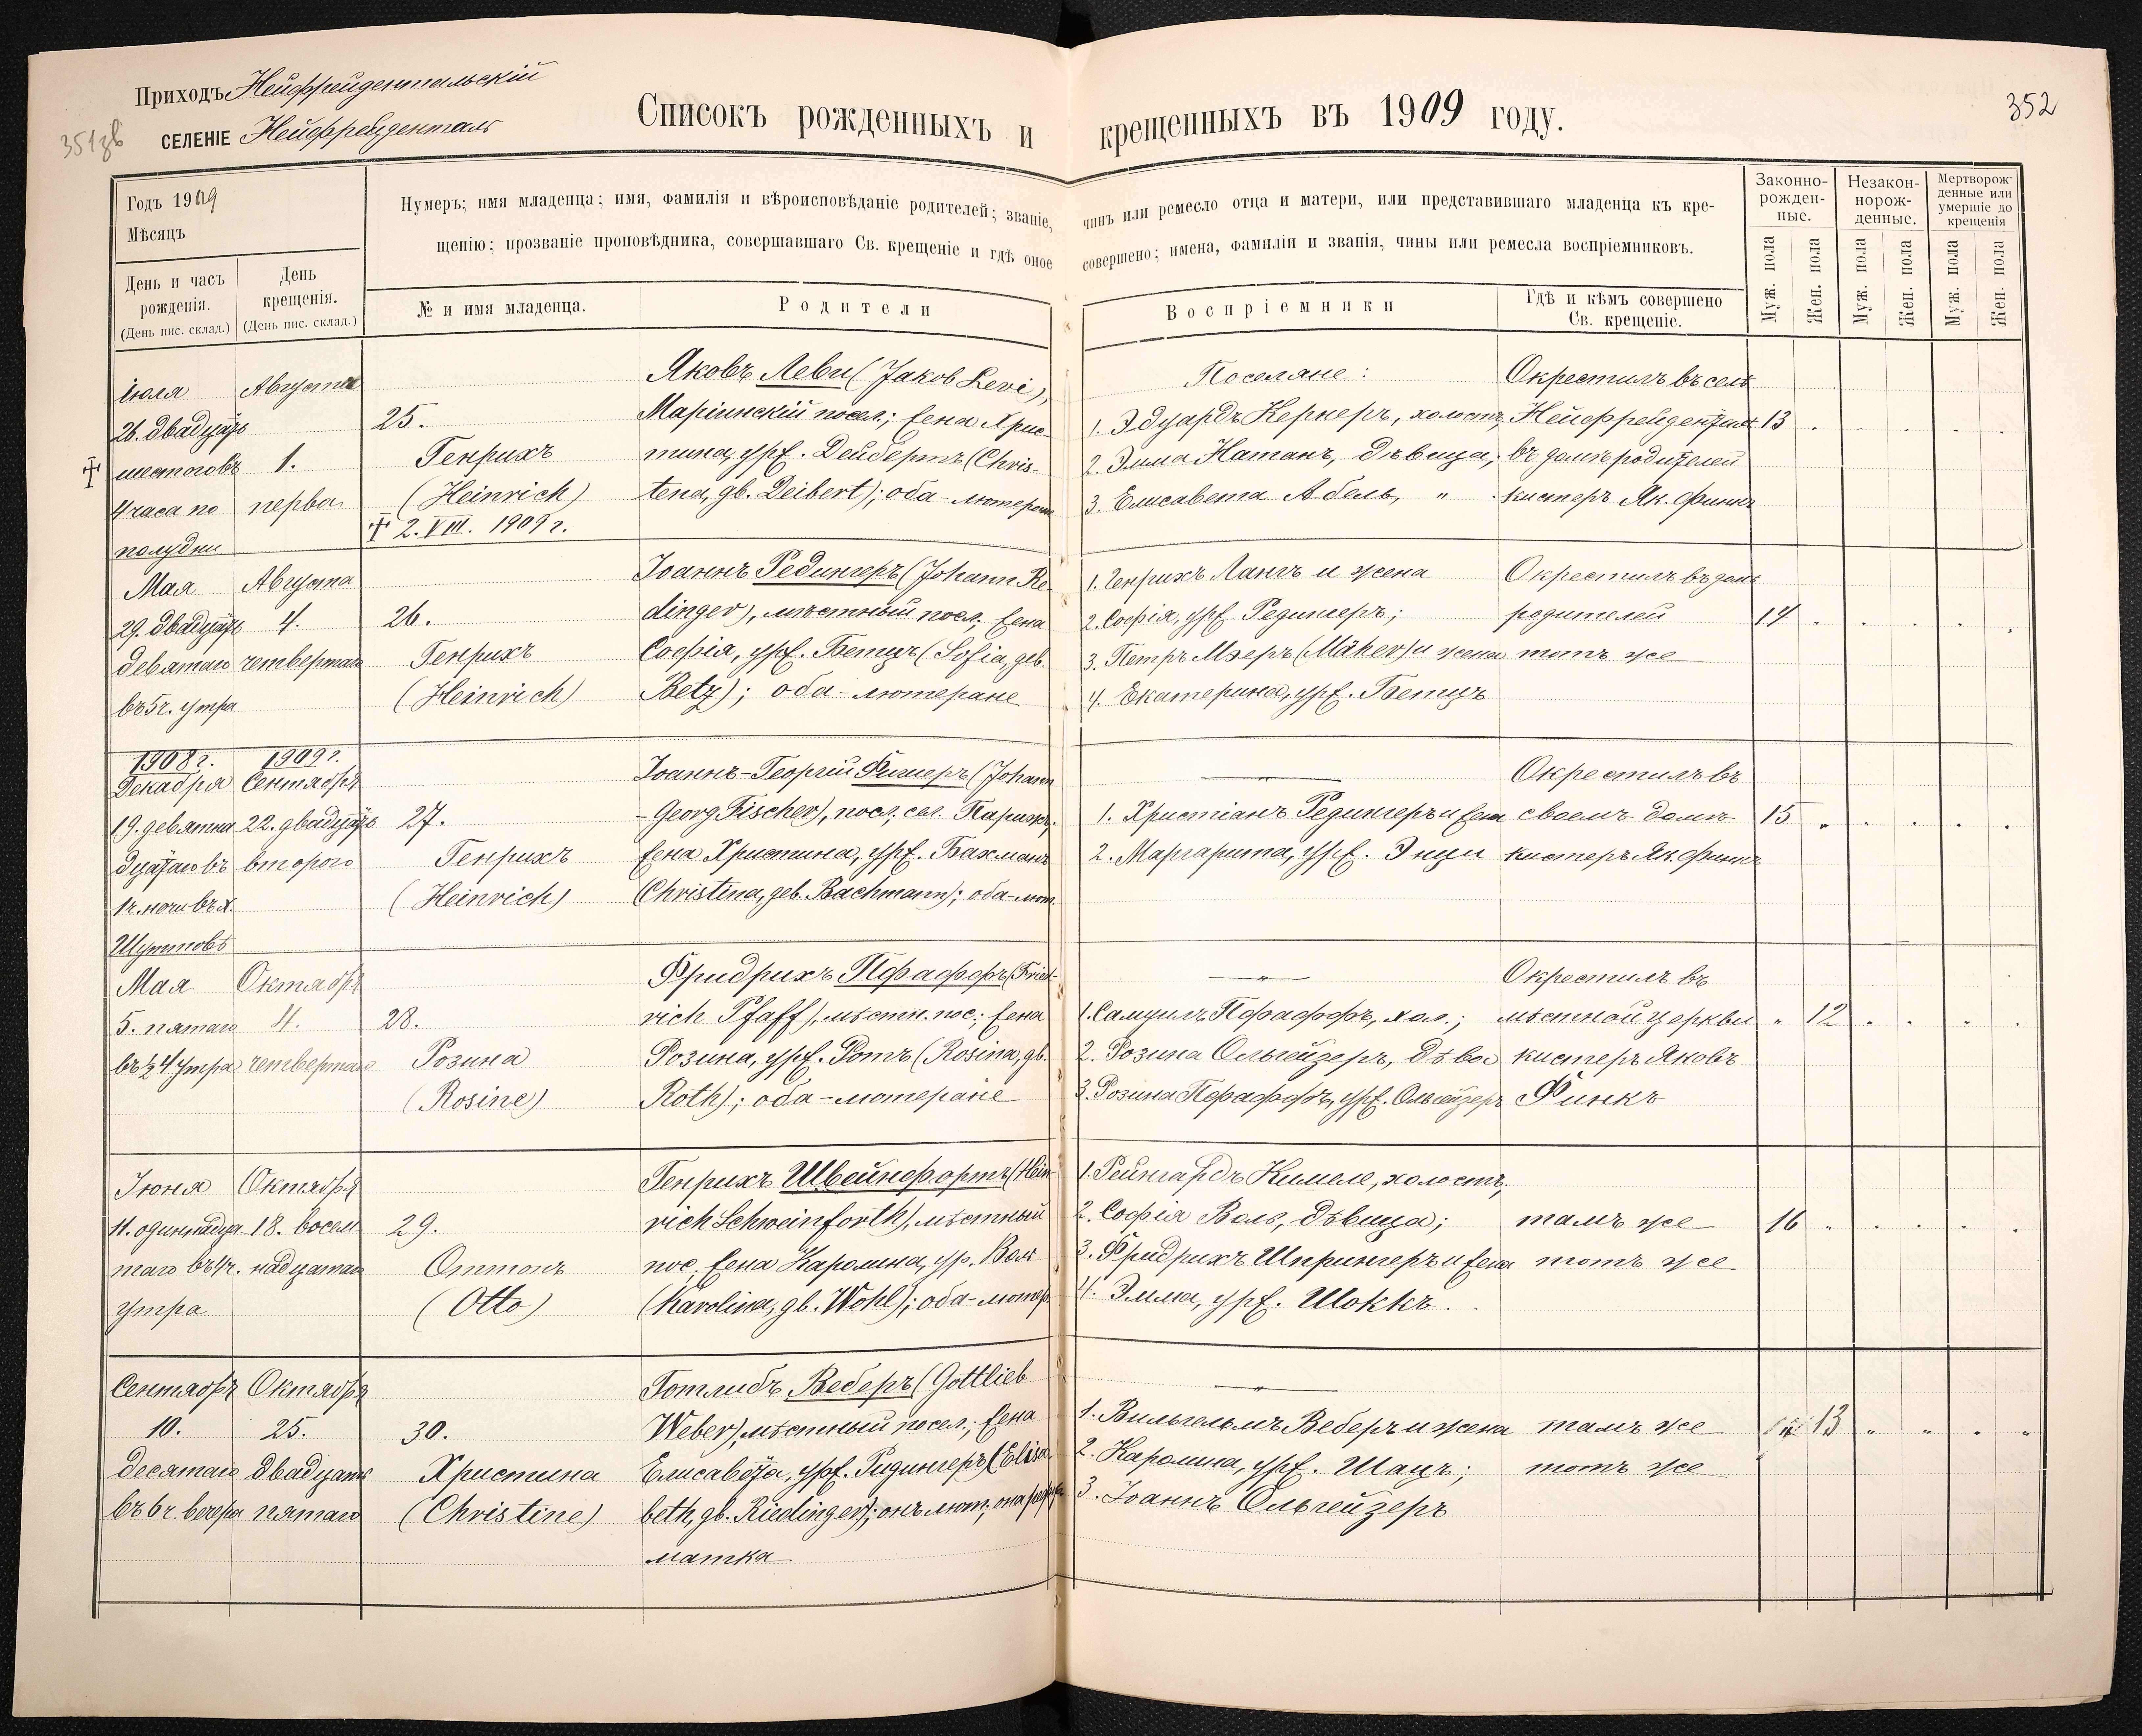 Приходъ Нейфрейдентальскій
351об
СЕЛЕНІЕ Нейфрейденталь
Списокъ рожденныхъ и крещенныхъ въ 1909 году.
352
Годъ 1909
Мѣсяцъ
День и часъ рожденія.
(День пис. склад.)
День крещенія.
(День пис. склад.)
Нумеръ; имя младенца; имя, фамилія и вѣроисповѣданіе родителей; званіе, чинъ или ремесло отца и матери, или представившаго младенца къ кре-
щенію; прозваніе проповѣдника, совершавшаго Св. крещеніе и гдѣ оное совершено; имена, фамиліи и званія, чины или ремесла воспріемниковъ.
№ и имя младенца.
Родители
Воспріемники
Гдѣ и кѣмъ совершено
Св. крещеніе.
Законно-
рожден-
ные.
Незакон-
норож-
денные.
Мертворож-
денные или
умершіе до
крещенія
Муж. пола
Жен. пола
Муж. пола
Жен. пола
Муж. пола
Жен. пола
Іюля
26. двадцать
шестого въ
4 часа по
полудни
Августа
1.
перва
25.
Генрихъ
(Heinrich)
2. VIII. 1909 г.
Яковъ Леви (Jakob Levi),
Маріинскій посел.; жена Хрис-
тина, урж. Дейбертъ (Chris-
tena, gb. Deibert); оба-лютеране
Поселяне:
1. Эдуардъ Кернеръ, холостъ,
2. Эмма Натанъ, дѣвица;
3. Елисавета Абель, "
Окрестилъ въ сел.
Нейфрейденталѣ
въ домѣ родителей
кистеръ Як. Финкъ
13
Мая
29. двадцать
девятаго
въ 5 ч. утра
Августа
4.
четвертаго
26.
Генрихъ
(Heinrich)
Іоаннъ Редингеръ (Johann Re-
dinger), мѣстный посл; жена
Софія, урж. Бетцъ (Sofia, geb.
Betz); оба-лютеране
1. Генрихъ Лангъ и жена
2. Софія, урж. Редингеръ;
3. Петръ Мэеръ (Mäher) и жена
4. Екатерина, урж. Бетцъ
Окрестилъ въ домѣ
родителей
тотъ же
14
1908 г.
Декабря
19. девятна
дцатаго въ
1 ч. ночи въ х.
Шуттовъ
1909 г.
Сентября
22. двадцать
второго
27.
Генрихъ
(Heinrich)
Іоаннъ-Георгій Фишеръ (Johann
-Georg Fischer), посл, сел. Парижъ;
жена Христина, урж. Бахманъ
(Christina, geb. Bachmann); оба-лют.
1. Христіанъ Редингеръ и жена
2. Маргарита, урж. Энци
Окрестилъ въ
своемъ домѣ
кистеръ Як. Финкъ
15
Мая
5. пятаго
въ ½ 4 утра
Октября
4.
четвертаго
28.
Розина
(Rosine)
Фридрихъ Пфаффъ (Fried-
rich Pfaff), мѣстн. пос.; жена
Розина, урж. Ротъ (Rosina, gb.
Roth); оба-лютеране
1. Самуилъ Пфаффъ, хол.;
2. Розина Ольгейзеръ, дѣва
3. Розина Пфаффъ, урж. Ольгейзеръ
Окрестилъ въ
мѣстной церкви
кистеръ Яковъ
Финкъ
" 12
Іюня
11. одиннадца
таго въ 4 ч.
утра
Октября
18. восем
надцатаго
29.
Оттонъ
(Otto)
Генрихъ Швейнфортъ (Hein-
rich Schweinforth), мѣстный
пос; жена Каролина, ур. Воль
(Karolina, gb. Wohl); оба-лютер.
1. Рейнгардъ Кимеле, холостъ;
2. Софія Воль, дѣвица;
3. Фридрихъ Шпрингеръ и жена
4. Эмма, урж. Шоккъ.
тамъ же
тотъ же
16
Сентября
10.
десятаго
въ 6 ч. вечера
Октября
25.
двадцать
пятаго
30.
Христина
(Christine)
Готлибъ Веберъ (Gottlieb
Weber), мѣстный посел.; жена
Елисавета, урж. Ридингеръ (Elisa-
beth, gb. Riedinger); онъ лют; она рефор
матка
1. Вильгельмъ Веберъ и жена
2. Каролина, урж. Шацъ;
3. Іоаннъ Ольгейзеръ
тамъ же
тотъ же
13